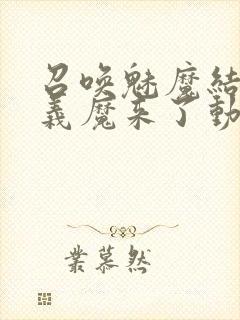 召唤魅魔结
义魔来了动
業慕然